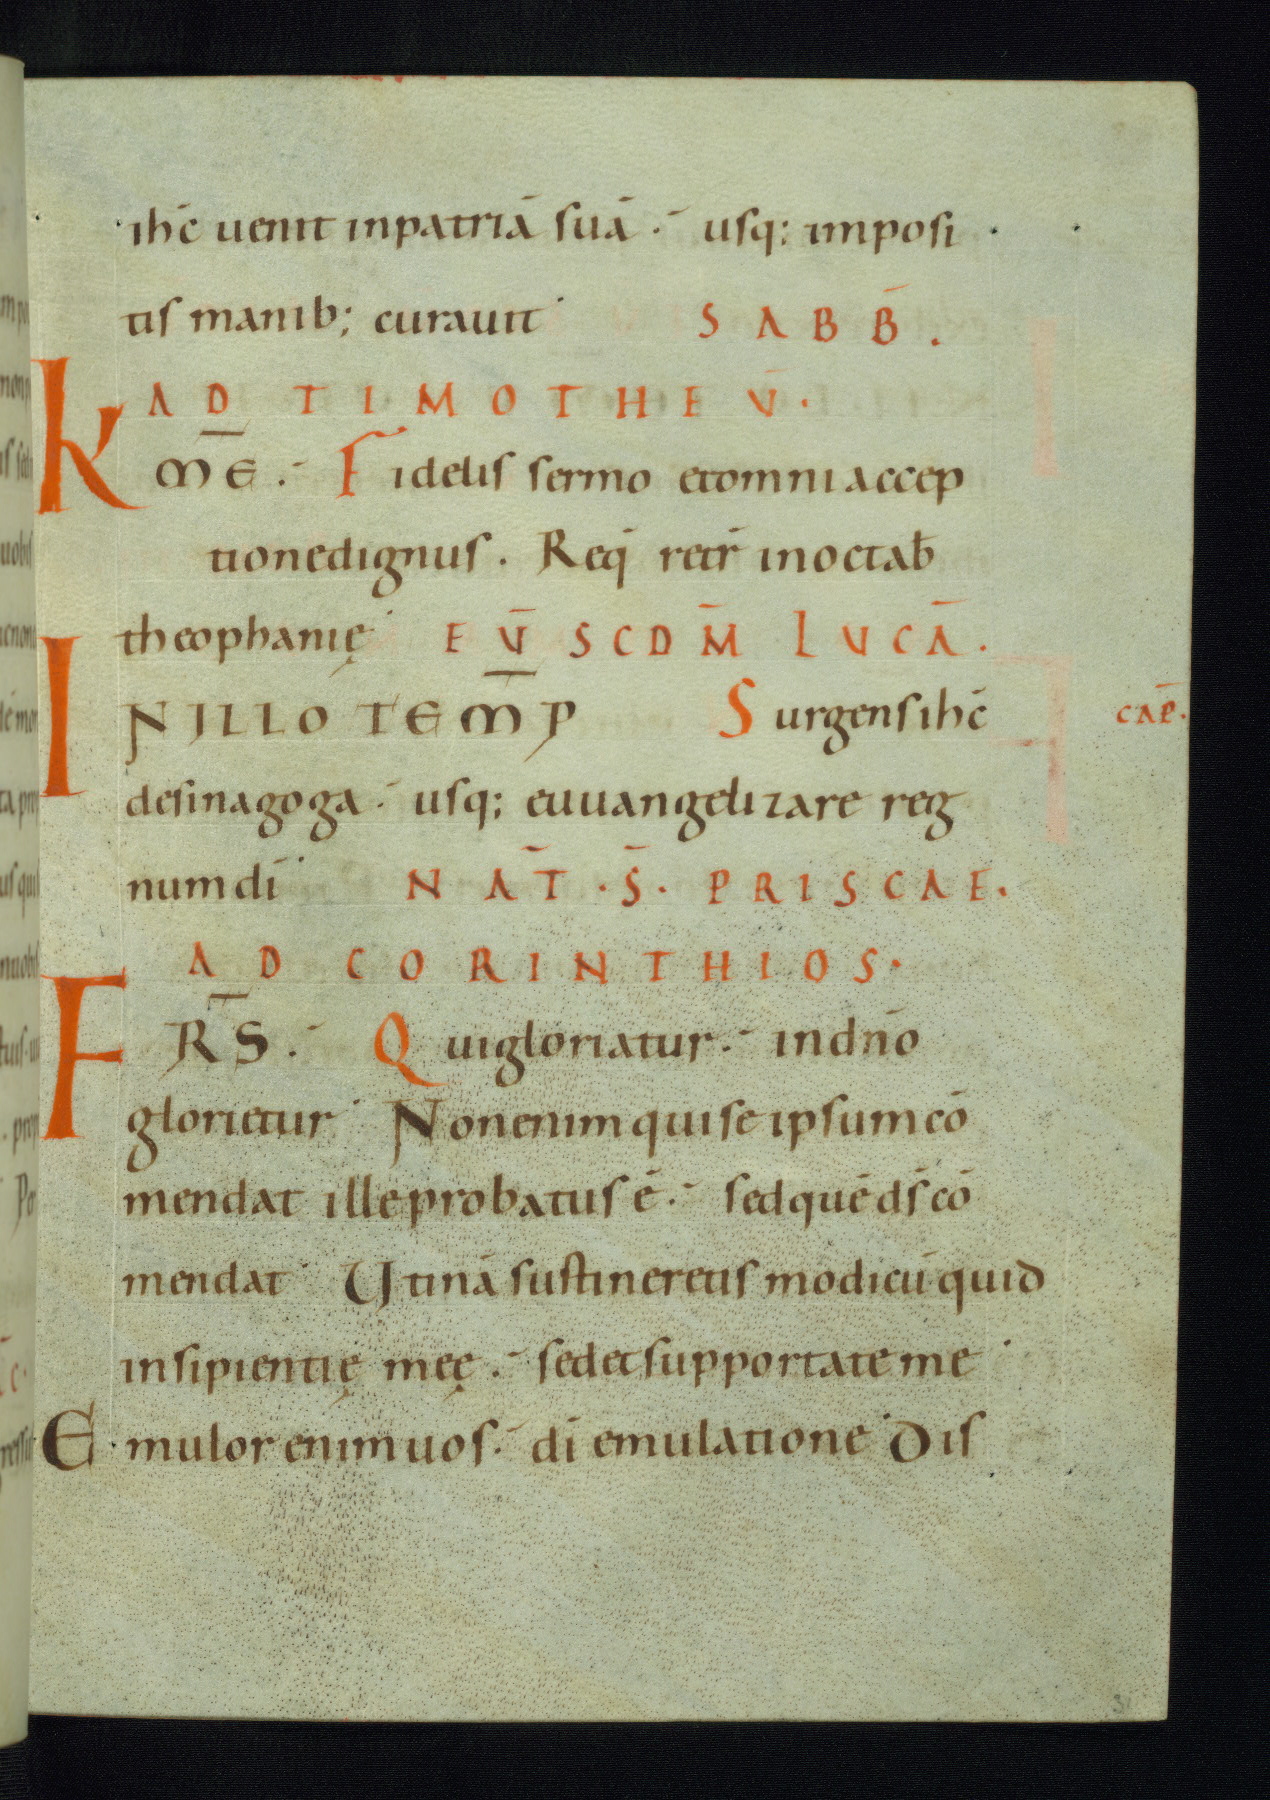 ihc̄ uenit inpatriā suā. usq; imposi
tis manib; curauit SABB̄.
AD TIMOTHEV̄.
KM̄E. Fidelis sermo etomni accep
tionedignus. Req̄ retr̄ inoctab̄
theophanię EV̄ SCDM̄ LUCĀ.
INILLO TEM̄P Surgensihc̄ CAP̄.
desinagoga. usq; euuangelizare reg
numdī NAT̄.S̄. PRISCAE.
AD CORINTHIOS.
FR̄S. Quigloriatur. indn̄o
glorietur Nonenimquiseipsumcō
mendat illeprobatusē. sedquēds̄cō
mendat Utinā sustineretis modicū quid
insipientię meę. sedetsupportateme
Emulorenimuos. dī emulatione Dis